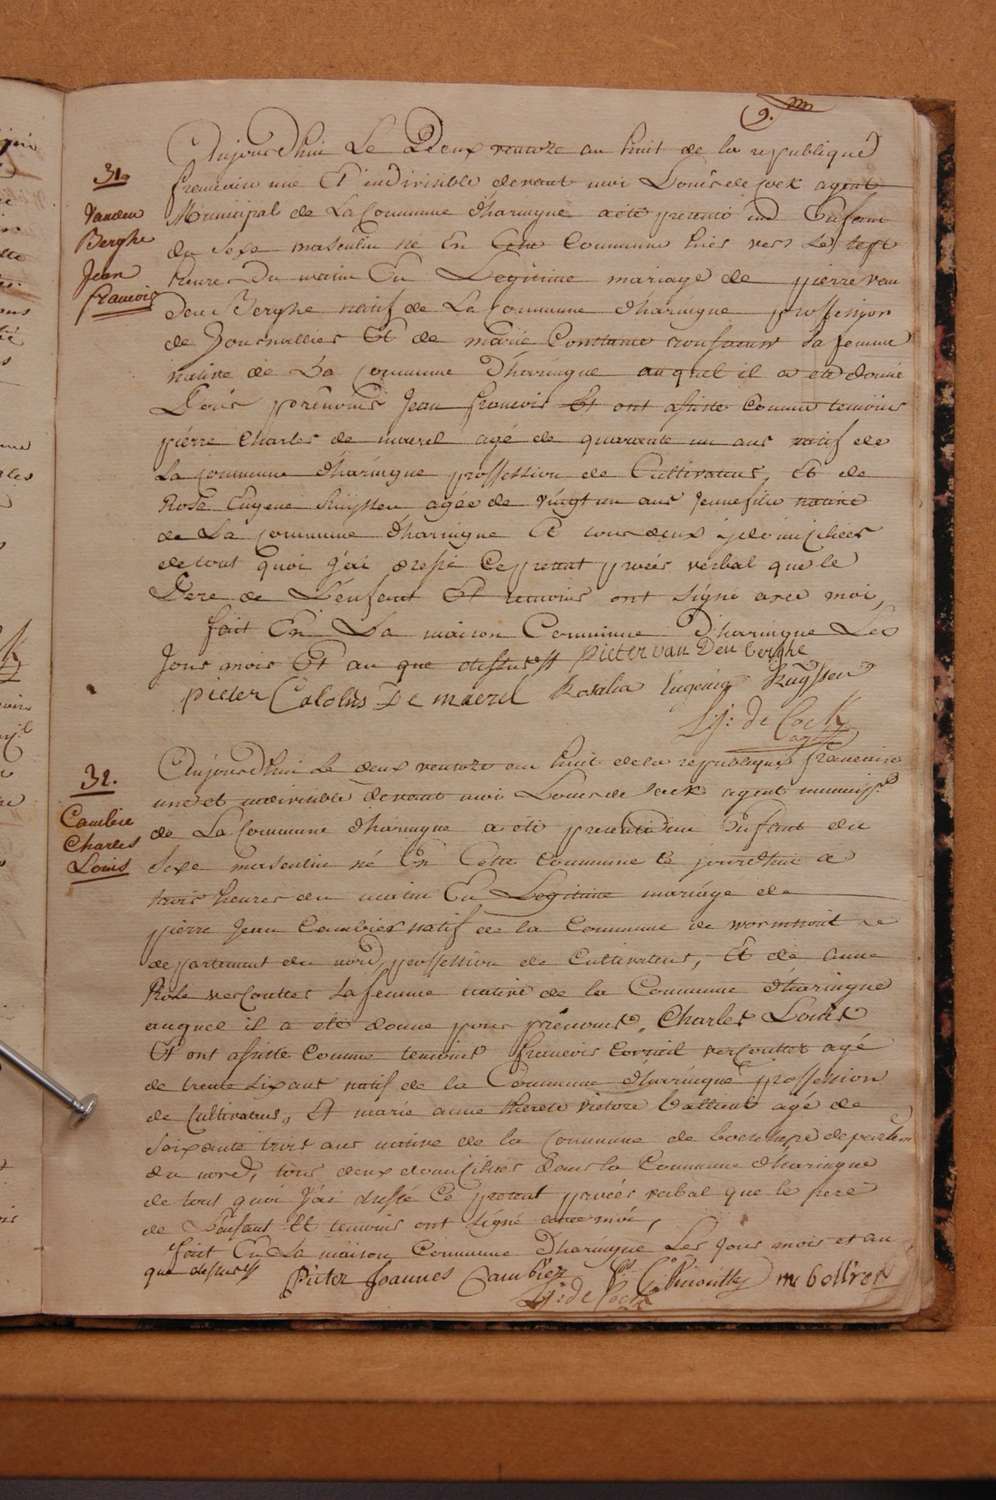 9.
31.
Vanden
Berghe
Jean
francois
Aujourd'hui Le Deux ventoze an huit de la republique
francaise une Et indivisible devant moi Louis de Cock agent
Municipal de La Commune d'haringue a été presenté un Enfant
du Sexe masculin né En Cette Commune hier vers les sept
heures Du matin En Legitime mariage de pierre van
Den Berghe natif de La Commune d'haringue proffession
de Journallier Et de marie Constance sa femme
native de La Commune D'haringue auquel il a été donné
Pour prenoms Jean francois Et ont assisté Comme temoins
pierre Charles de maerel agé de quarente un ans natif de
La Commune d'haringue proffession de Cultivateur, Et de
Rose Eugene Ruyssen agée de vingt un ans jeunefille native
de La Commune d'haringue Et tous deux y domicilies
de tout quoi j'ai dressé Ce present procés verbal que le
Pere de L'enfant Et temoins ont signé avec moi,
fait En La maison Commune D'haringue Les
Jour mois Et an que dessus pieter van Den berghe
pieter Calolus De maerel Rosalia Eugenia Ruyssen
L: de Cock
agt
32.
Cambier
Charles
Louis
Aujourd'hui Le deux ventoze an huit de la republique francaise
une et indivisible devant moi Louis de Cock agent municipl
de La Commune d'haringue a été presenté un Enfant du
Sexe masculin né En Cette Commune le jourd'hui a
trois heures du matin En Legitime mariage de
pierre Jean Cambier natif de la Commune de wormhout
departement du nord, proffession de Cultivateur, Et de anne
Rose vercoutter sa femme native de la Commune d'haringue
auquel il a été donné pour prenoms, Charles Louis
Et ont assisté Comme temoins francois Corneil vercoutter agé
de trente six ans natif de la Commune d'harringue proffession
de Cultivateur, Et marie anne therese victore agé de
soixante trois ans native de la Commune de departement
du nord, tous deux domicilies dans la Commune d'haringue
de tout quoi J'ai dressé Ce present procés verbal que le pere
de L'enfant Et temoins ont signé avec moi,
fait En La maison Commune D'haringue Les Jour mois et an
que dessus pieter Joannes Cambier
L: de Cock